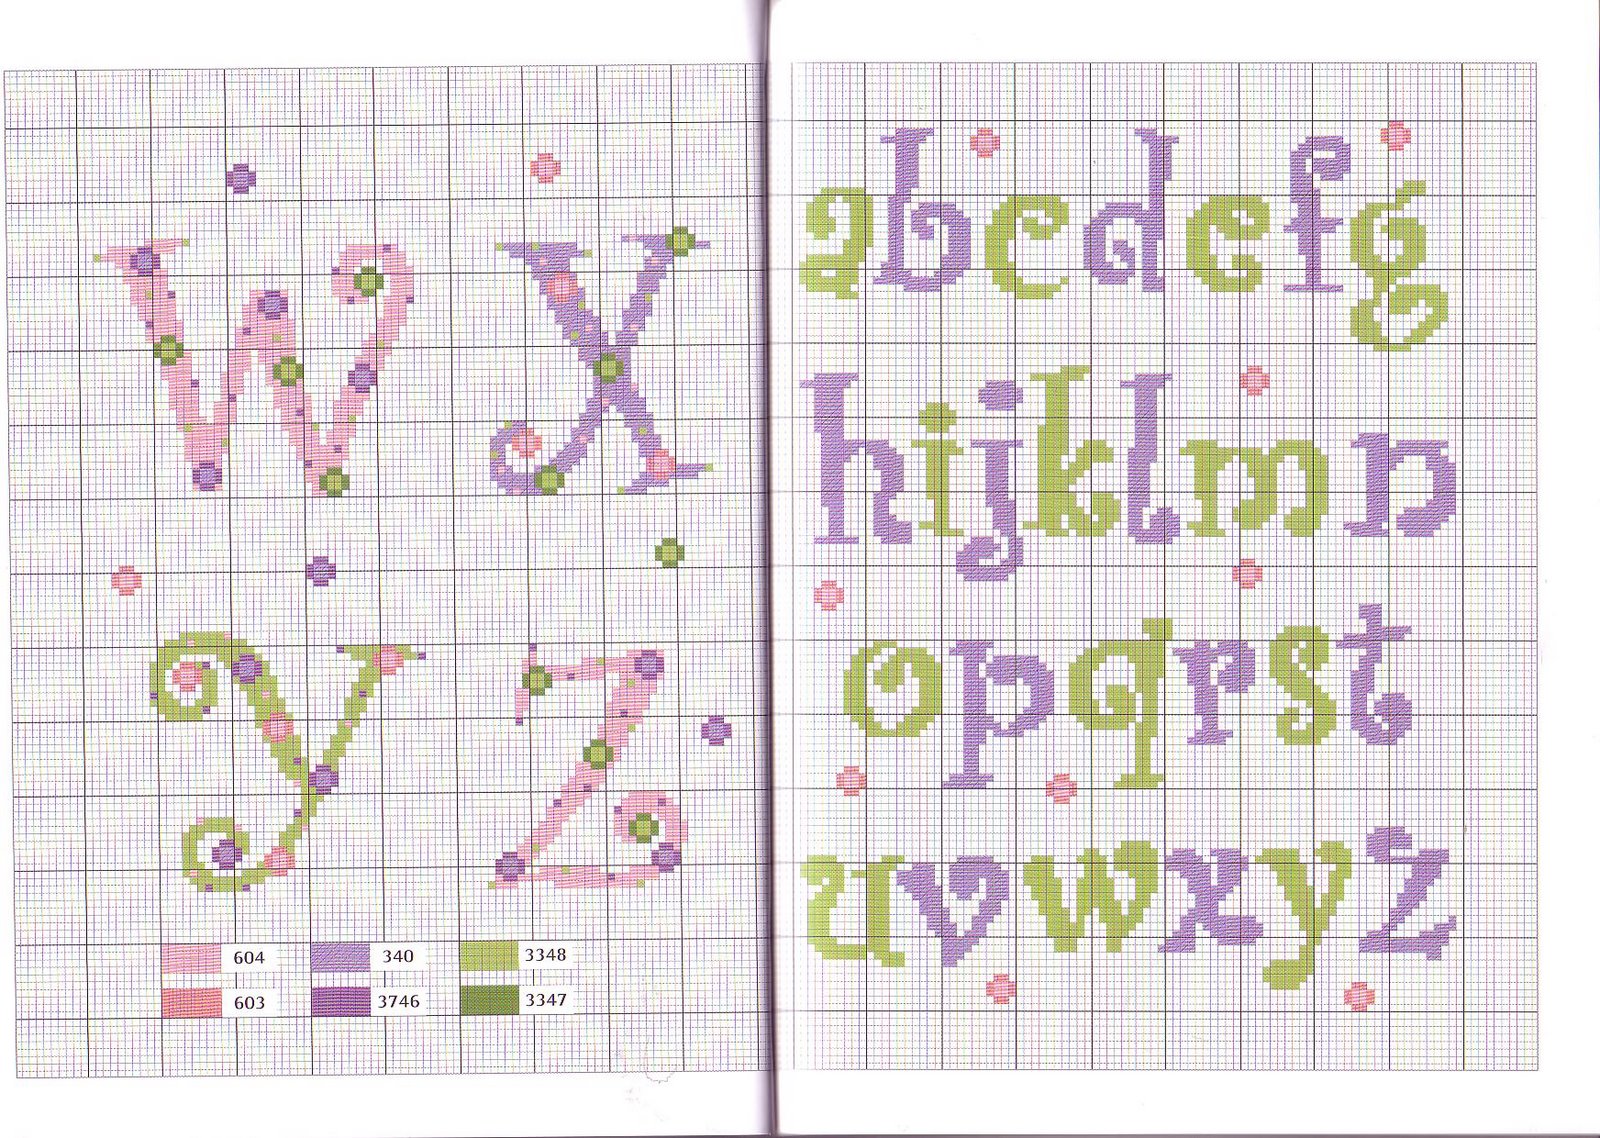 W X
Y Z
604 340 3348
603 3746 3347
a b c d e f g
h i j k l m n
o p q r s t
u v w x y z